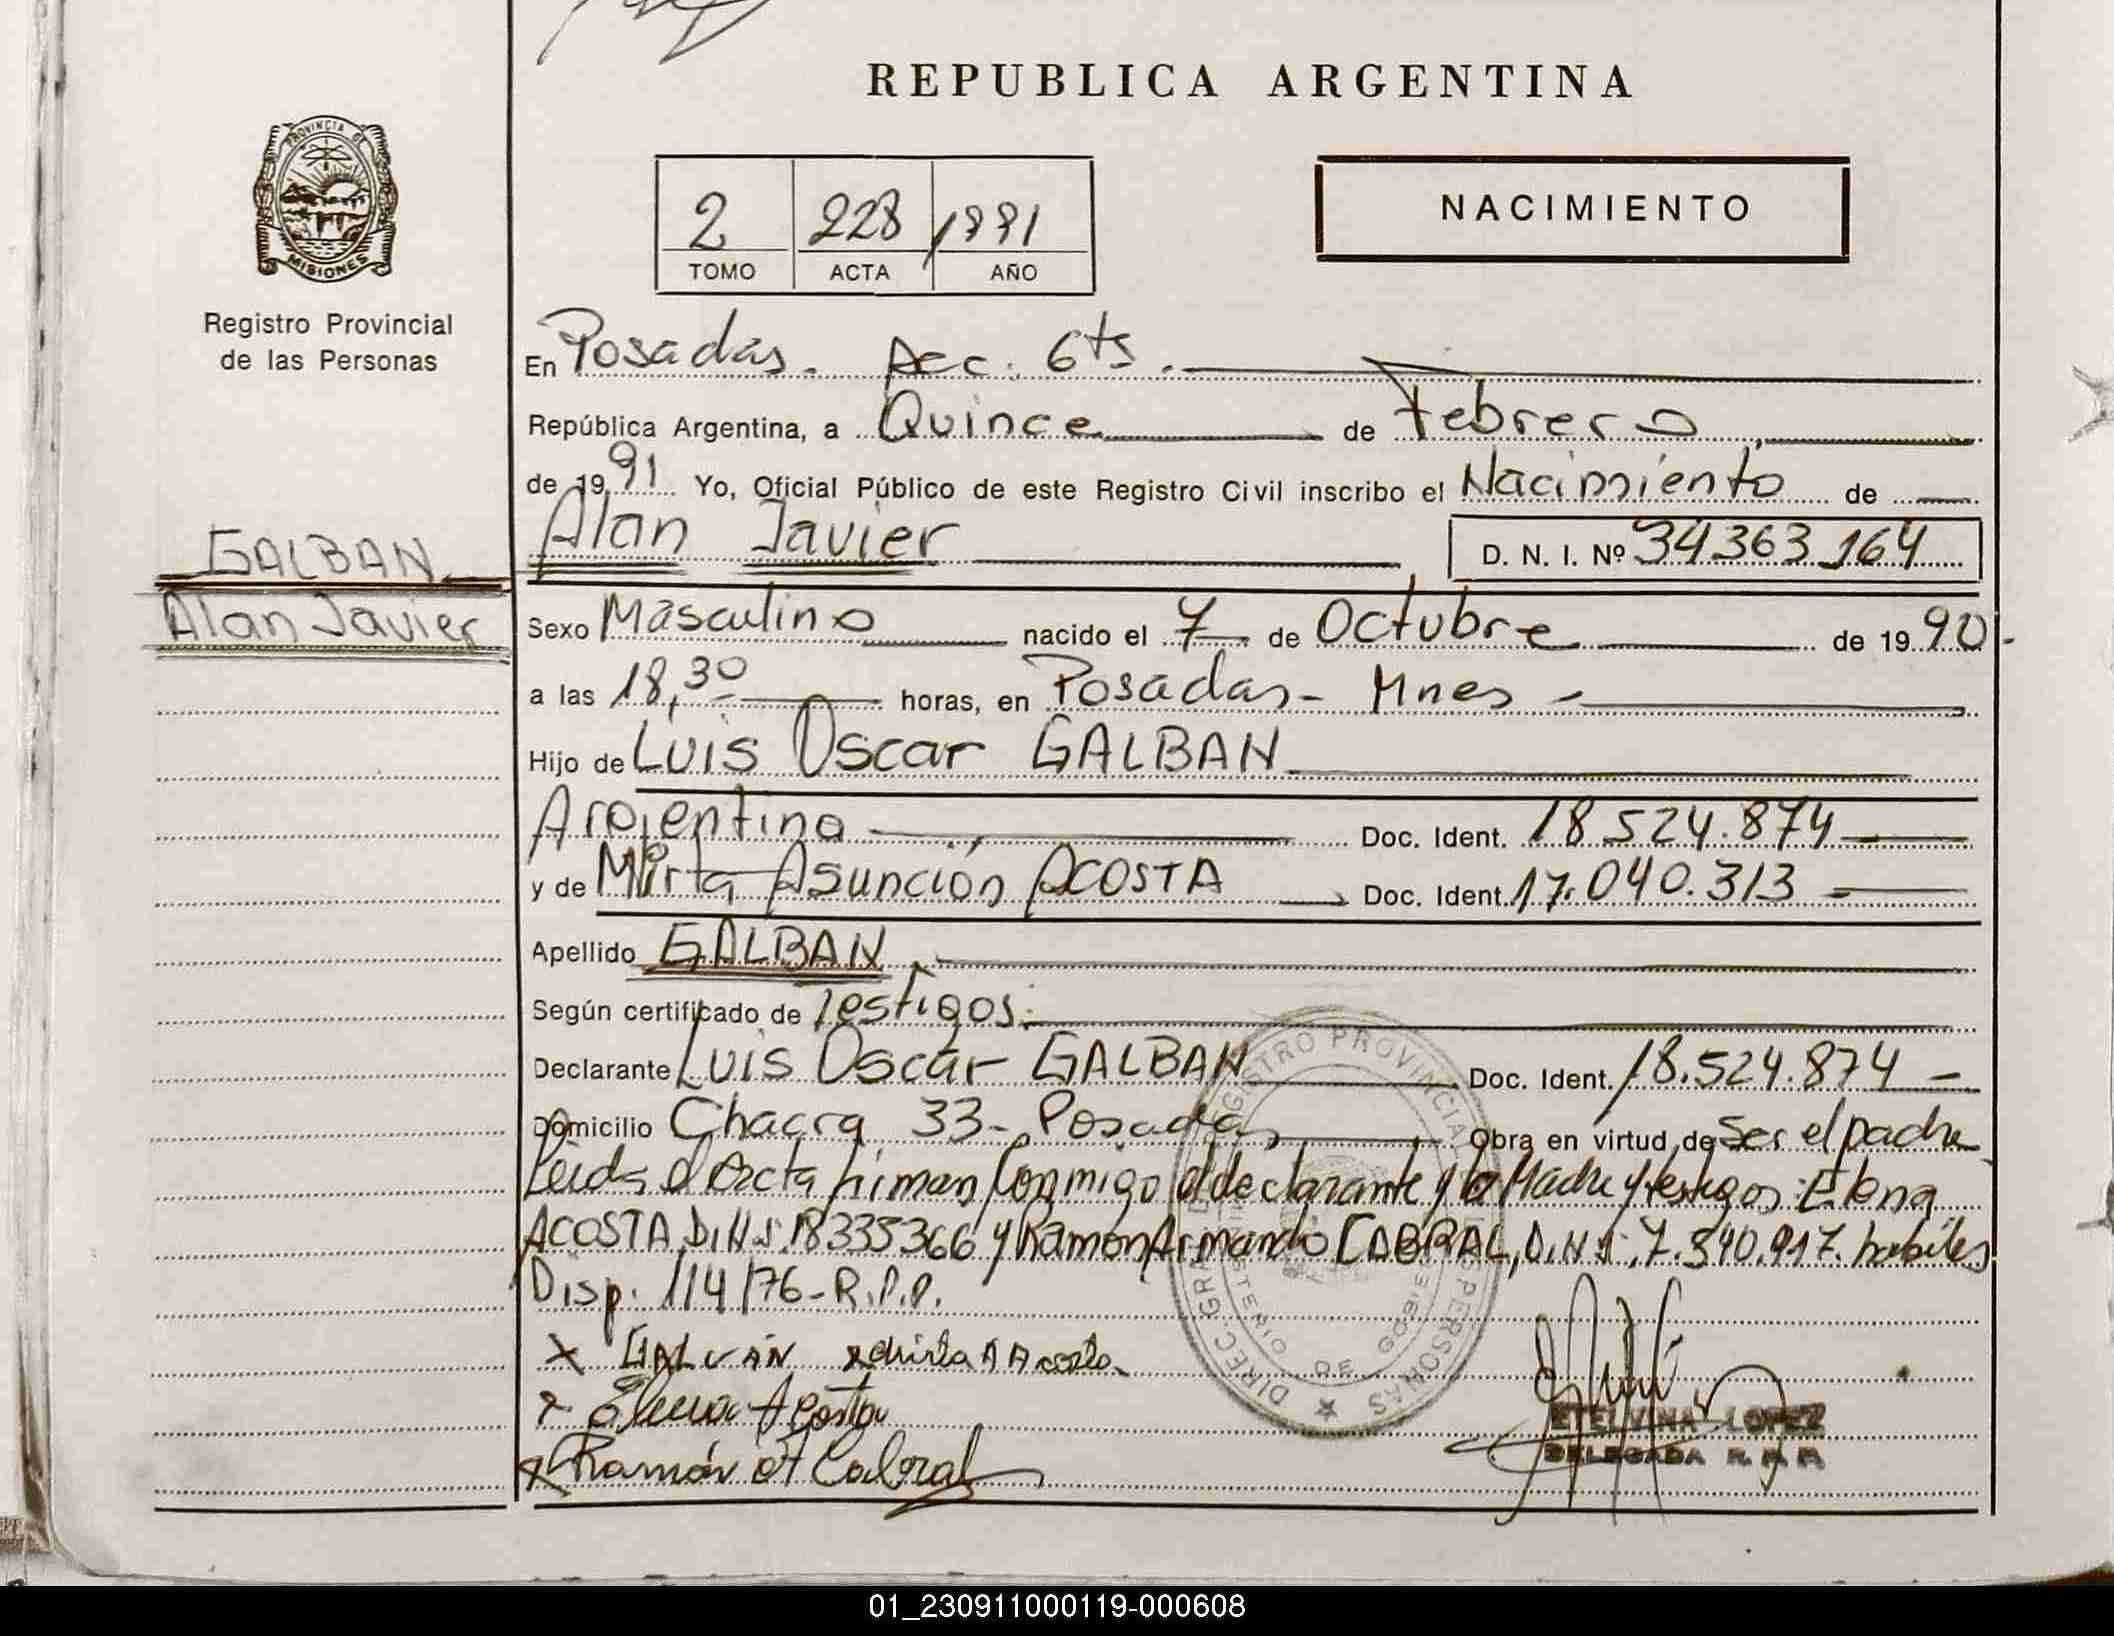 REPUBLICA ARGENTINA
PROVINCIA DE
MISIONES
Registro Provincial
de las Personas
2 228 1991
TOMO ACTA AÑO
NACIMIENTO
En Posadas. Sec. 6ta.
República Argentina, a Quince de Febrero
de 1991 Yo, Oficial Público de este Registro Civil inscribo el Nacimiento de
GALBAN
Alan Javier
Alan Javier D. N. I. Nº 34.363.164
Sexo Masculino nacido el 7 de Octubre de 1990.-
a las 18,30 horas, en Posadas - Mnes -
Hijo de Luis Oscar GALBAN
Argentina Doc. Ident. 18.524.874
y de Mirta Asunción ACOSTA Doc. Ident. 17.040.313
Apellido GALBAN
Según certificado de Testigos.
Declarante Luis Oscar GALBAN Doc. Ident. 18.524.874 -
Domicilio Chacra 33 - Posadas Obra en virtud de Ser el padre
Leida el Acta firman Conmigo el declarante y la Madre y testigos: Elena
ACOSTA, D.N.I. 18335366 y Ramón Armando CABRAL, D.N.I. 7.540.917. habiles
Disp. 114/76 - R.P.P.
x GALVAN Mirta A Acosta
x Elena Acosta
x Ramón A Cabral
ETELVINA LOPEZ
DELEGADA R. P. P.
DIREC. GRAL. REGISTRO PROVINCIAL PERSONAS
MINISTERIO DE GOBIE
01_230911000119-000608